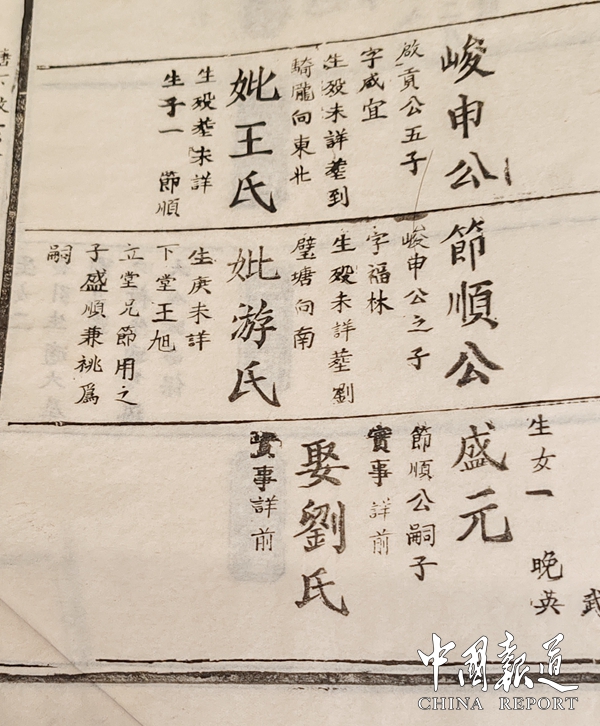 峻申公
啟貢公五子
字咸宜
生歿未詳塟到
騎隴向東北
妣王氏
生歿塟未詳
生子一 節順
節順公
峻申公之子
字福林
生歿未詳塟劉
壁塘向南
妣游氏
生庚未詳
下堂王旭
立堂兄節用之
子盛順兼祧爲
嗣
生女一 晚英
盛元
節順公嗣子
實事詳前
娶劉氏
實事詳前
中國報道
CHINA REPORT